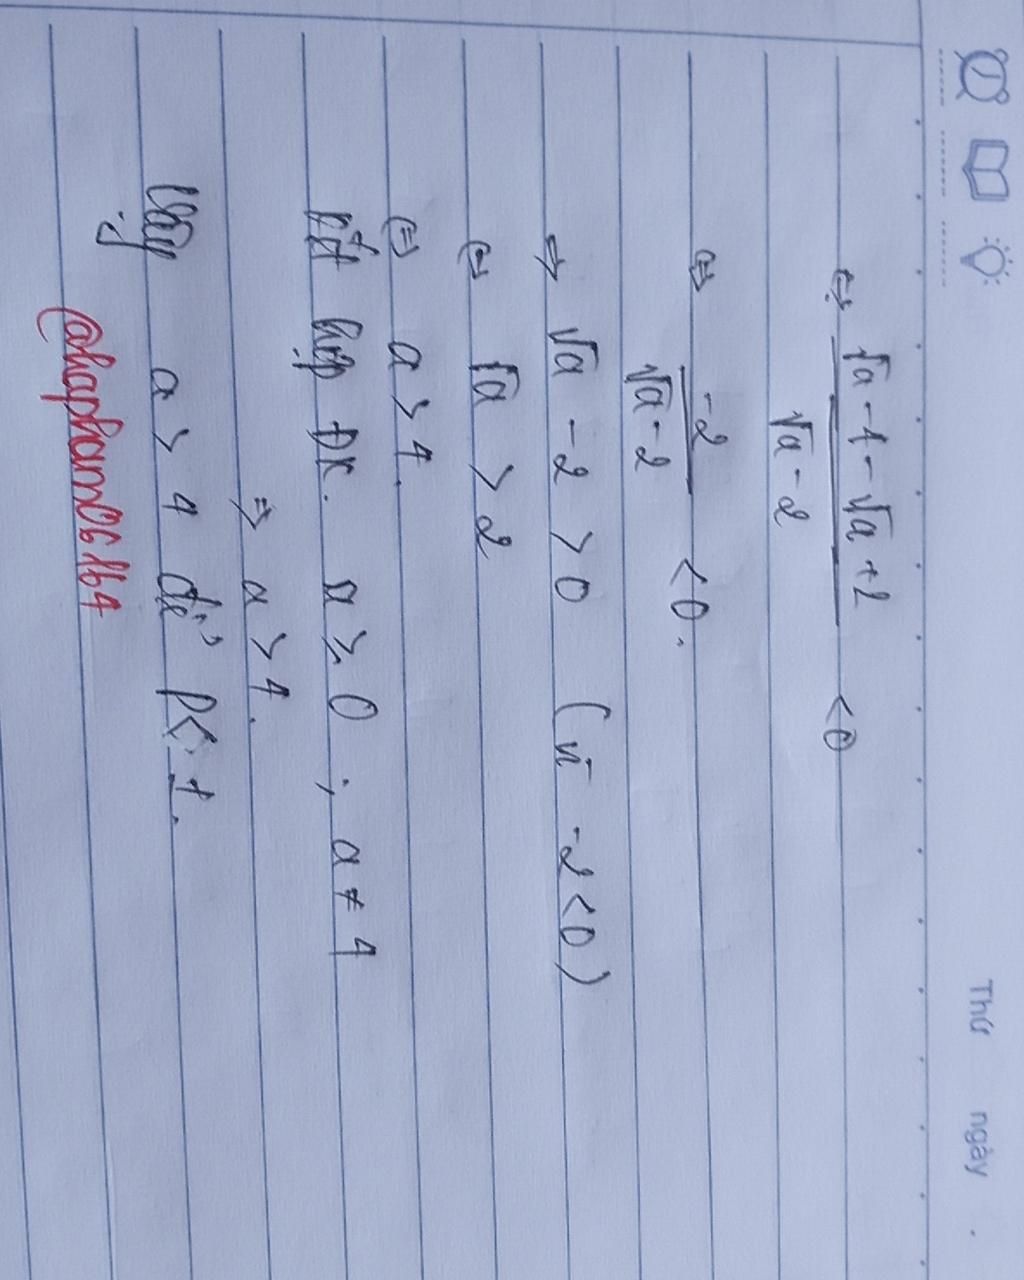 Thứ ngày .
⇔ √a - 4 - √a + 2 / √a - 2 < 0
⇔ -2 / √a - 2 < 0.
⇒ √a - 2 > 0 (vì -2 < 0)
⇔ √a > 2
⇔ a > 4.
Kết hợp ĐK. a ≥ 0 ; a ≠ 4
⇒ a > 4.
Vậy a > 4 để P < 1.
@hapham06164